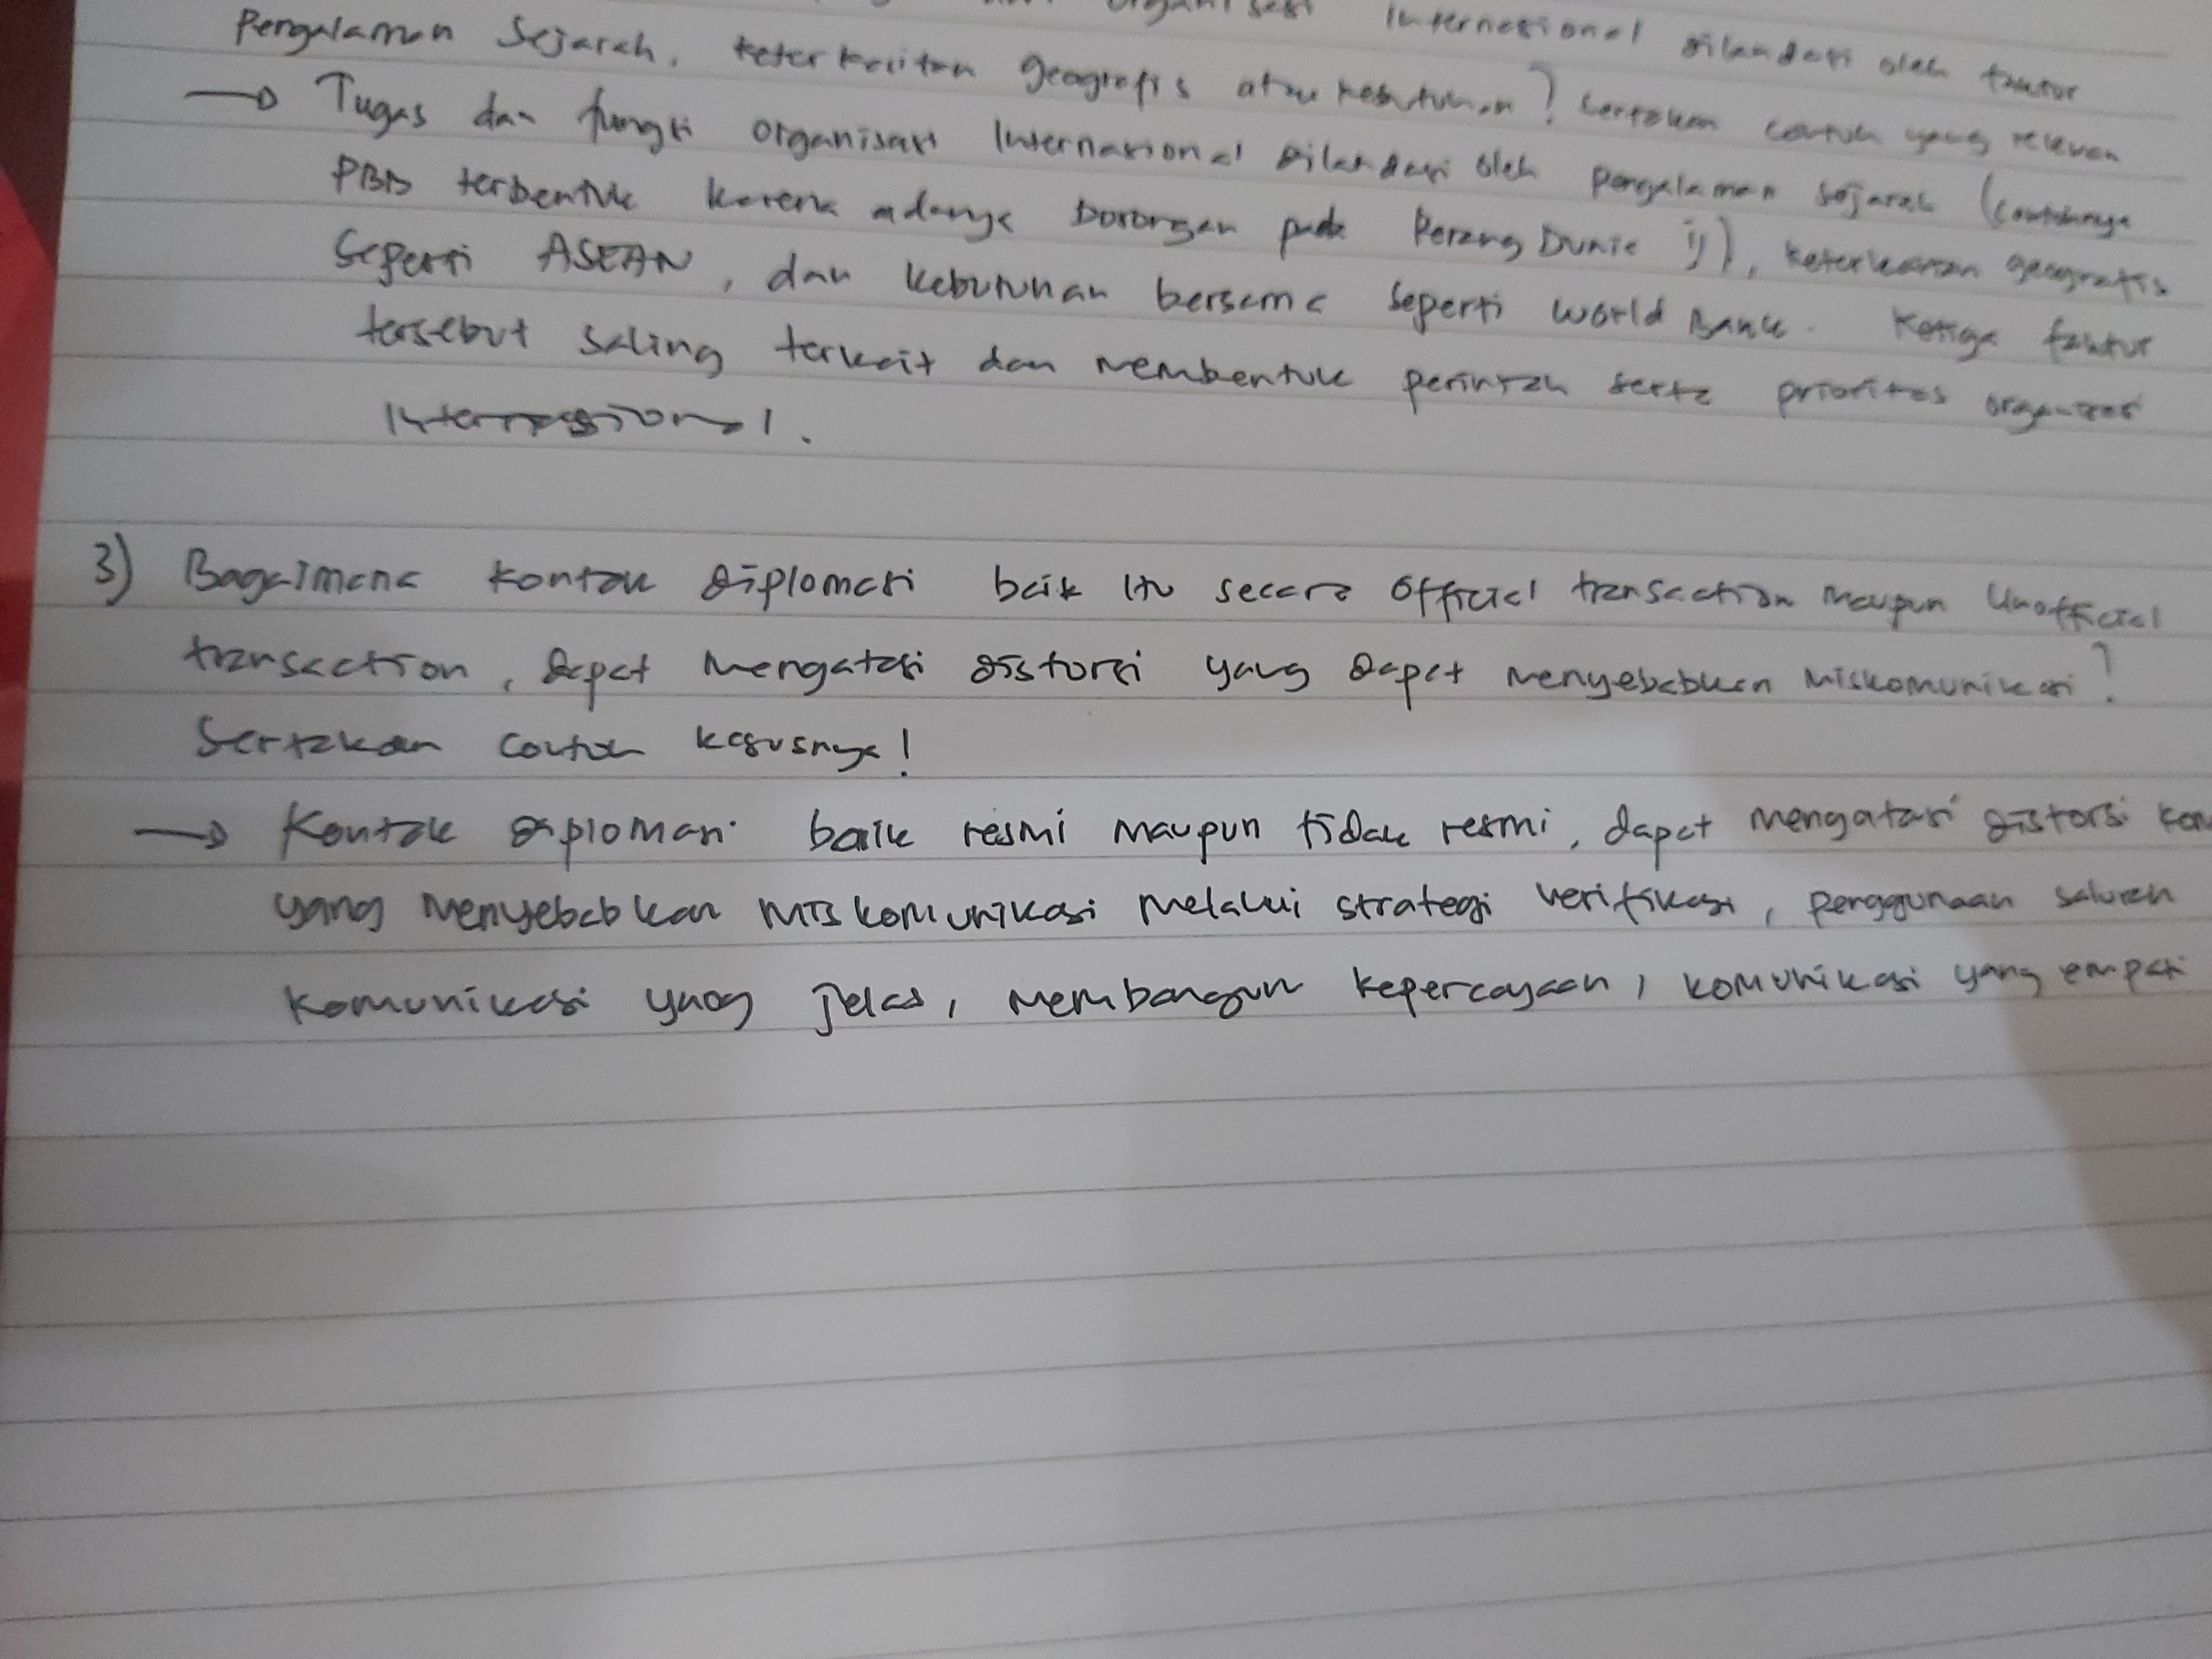 organisasi Internasional dilandasi oleh faktor
Pengalaman Sejarah, keterkaitan geografis atau kebutuhan? Sertakan contoh yang relevan
→ Tugas dan fungsi organisasi Internasional dilandasi oleh pengalaman sejarah (contohnya
PBB terbentuk karena adanya Dorongan pada Perang Dunia ij), keterkaitan geografis
Seperti ASEAN, dan kebutuhan bersama seperti World Bank. Ketiga faktor
tersebut saling terkait dan membentuk perintah serta prioritas organisasi
Internasional.
3) Bagaimana kontak diplomasi baik itu secara official transaction maupun Unofficial
transaction, dapat mengatasi distorsi yang dapat menyebabkan miskomunikasi?
Sertakan contoh kasusnya!
→ Kontak diplomasi baik resmi maupun tidak resmi, dapat mengatasi distorsi
yang menyebabkan miskomunikasi melalui strategi verifikasi, penggunaan saluran
komunikasi yang jelas, membangun kepercayaan, komunikasi yang empati